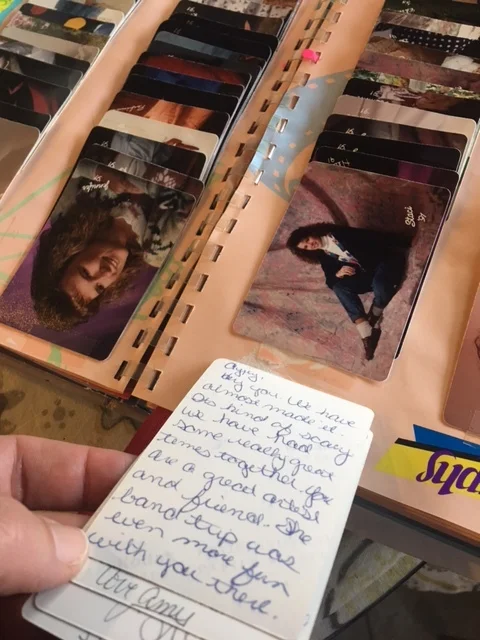 Hey you. We have
almost made it.
Its kind of scary
we have had
some really great
times together. You
are a great artest
and friend. The
band trip was
even more fun
with you there.
love amy
Jennifer
Staci